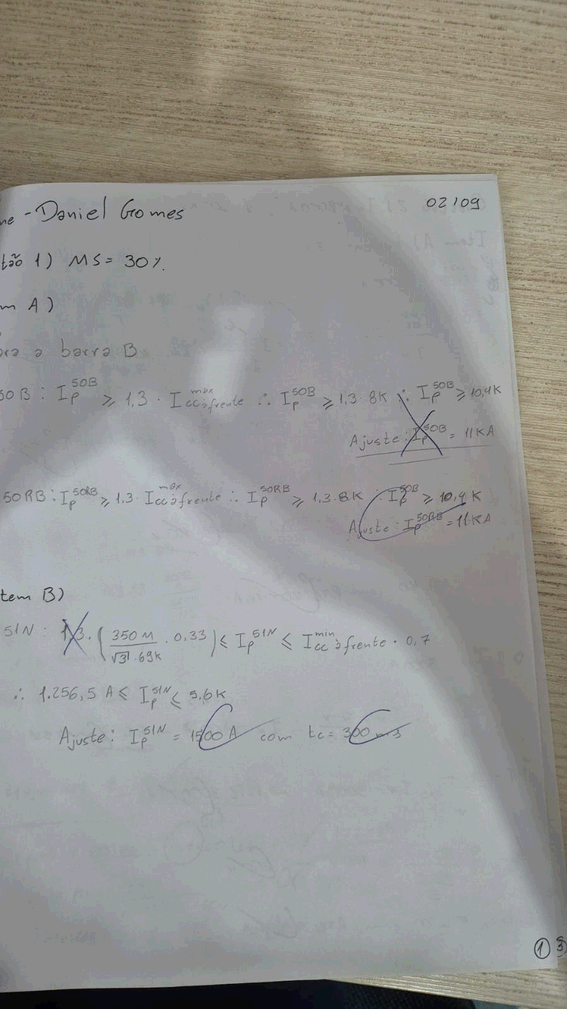 me - Daniel Gomes 02/09
tão 1) MS = 30%.
m A)
ara a barra B
50B: Ip^50B ≥ 1,3 · Icc à frente^máx ∴ Ip^50B ≥ 1,3 · 8K ∴ Ip^50B ≥ 10,4K
Ajuste: Ip^50B = 11KA
50RB: Ip^50RB ≥ 1,3 · Icc à frente^máx ∴ Ip^50RB ≥ 1,3 · 8K Ip^50B ≥ 10,4K
Ajuste: Ip^50RB = 11KA
tem B)
51N: 1,3 · (350M / √3 · 69K · 0,33) ≤ Ip^51N ≤ Icc à frente^mín · 0,7
∴ 1.256,5 A ≤ Ip^51N ≤ 5,6K
Ajuste: Ip^51N = 1500 A com tc = 300 ms
1